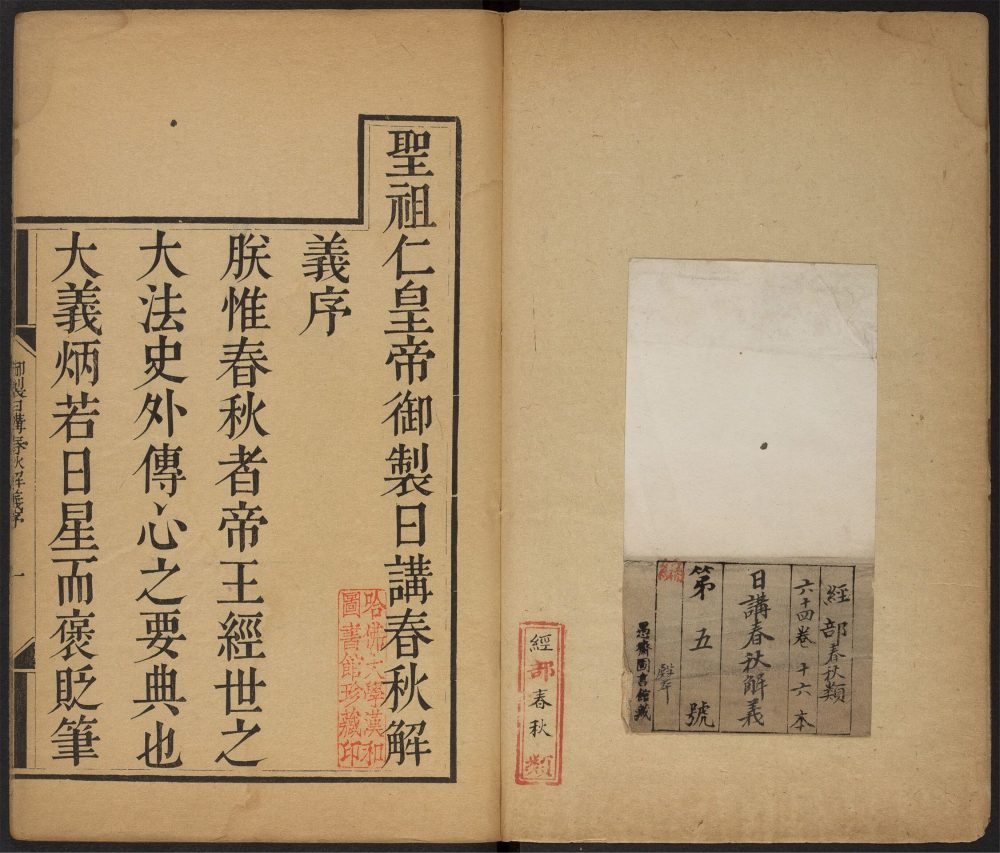 經部春秋類
六十四卷 十六本
日講春秋解義
第五號
愚齋圖書館藏
經部春秋類
聖祖仁皇帝御製日講春秋解
義序
朕惟春秋者帝王經世之
大法史外傳心之要典也
大義炳若日星而褒貶筆
哈佛大學漢和
圖書館珍藏印
御製日講春秋解義序
一